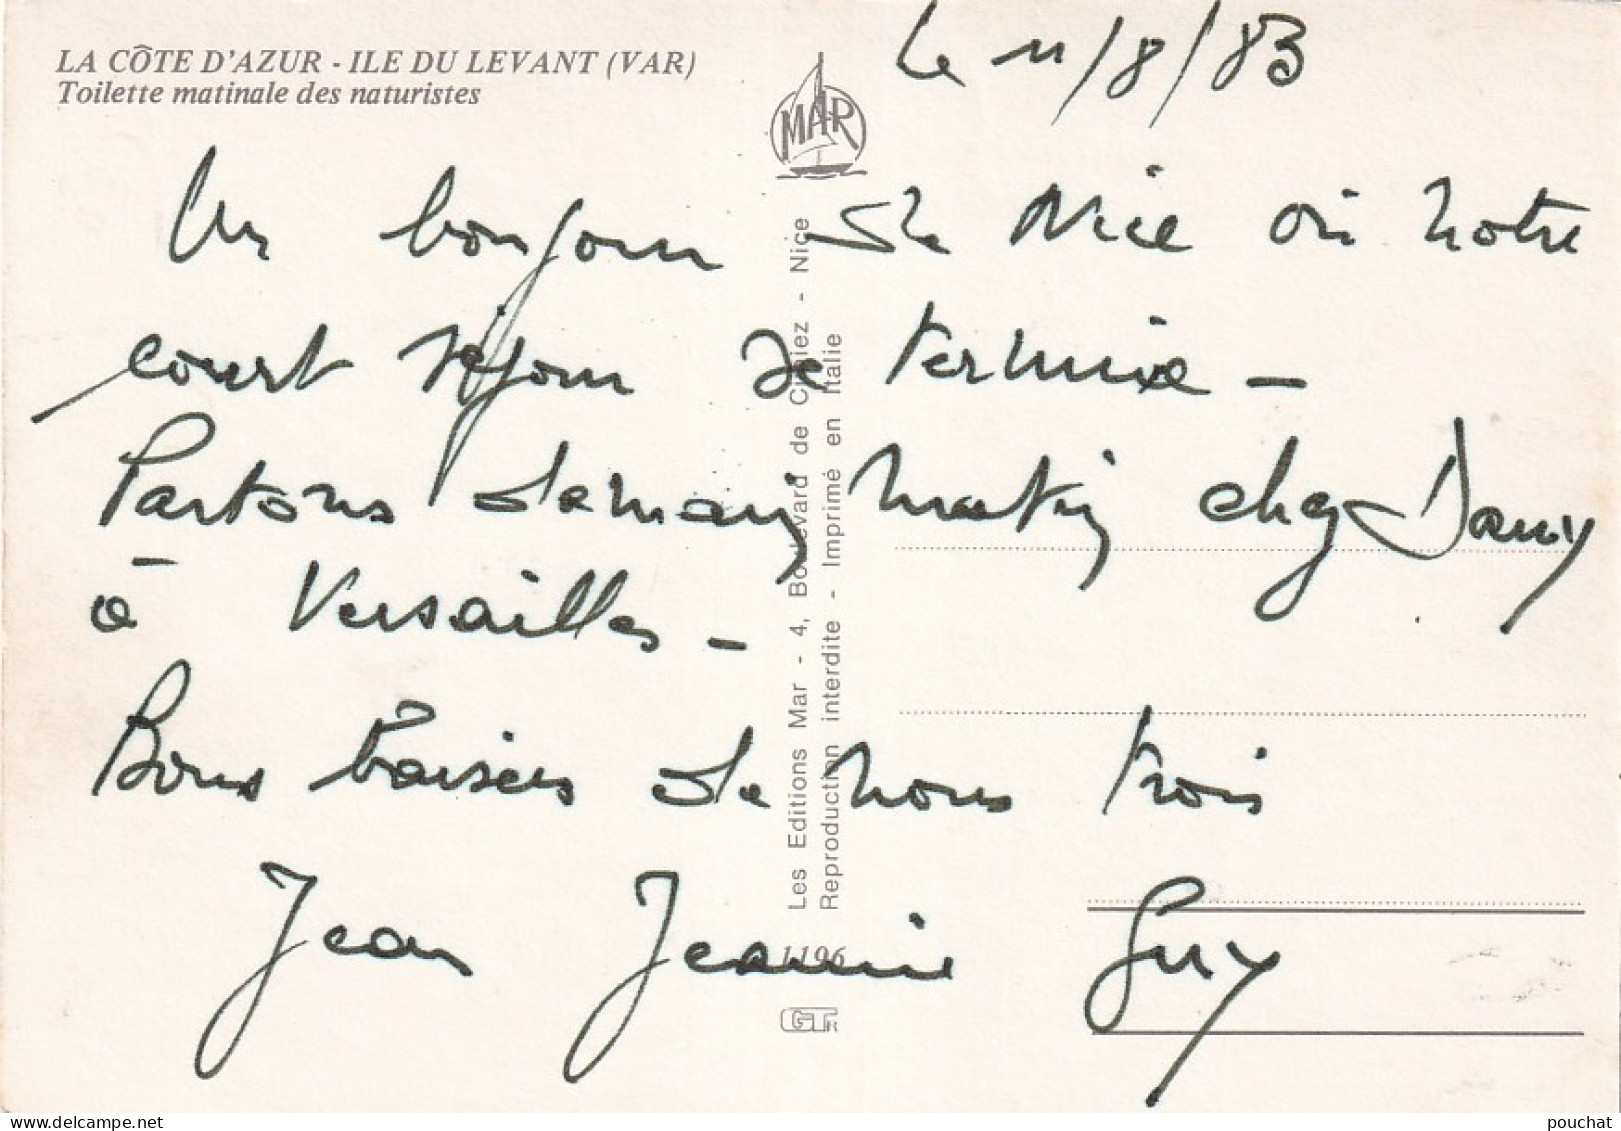 LA CÔTE D'AZUR - ILE DU LEVANT (VAR)
Toilette matinale des naturistes
MAR
Le 11/8/83
Un bonjour de Nice où notre
court séjour se termine -
Partons demain matin chez Dany
à Versailles -
Bons baisers de nous trois
Jean Jeannine Guy
Les Editions Mar - 4, Boulevard de Cimiez - Nice
Reproduction interdite - Imprimé en Italie
1196
GT
pouchat